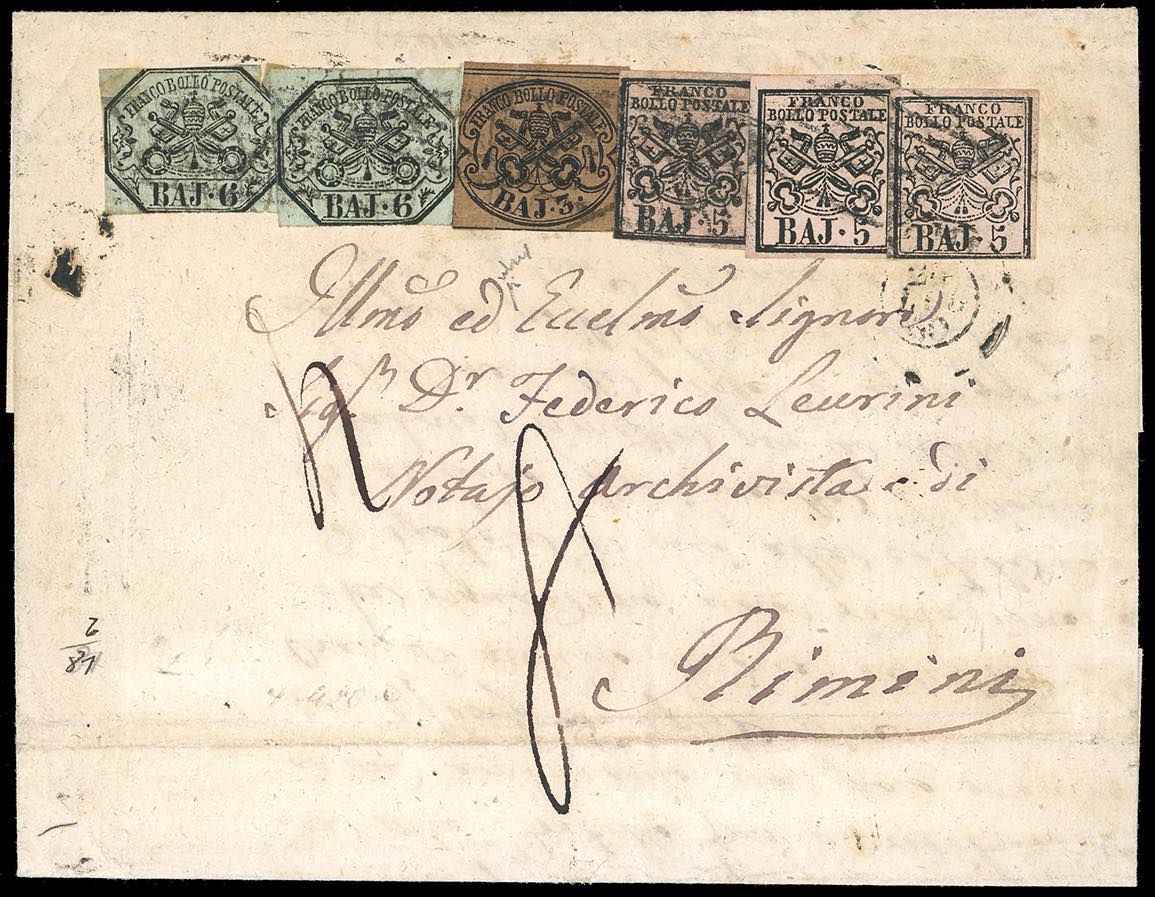 FRANCO BOLLO POSTALE
BAJ·6
FRANCO BOLLO POSTALE
BAJ·6
FRANCO BOLLO POSTALE
BAJ·3·
FRANCO
BOLLO POSTALE
BAJ·5
FRANCO
BOLLO POSTALE
BAJ·5
FRANCO
BOLLO POSTALE
BAJ·5
Illmo ed Eccelmo Signore
Sig.r Dr. Federico Leurini
Notajo Archivista di
Rimini